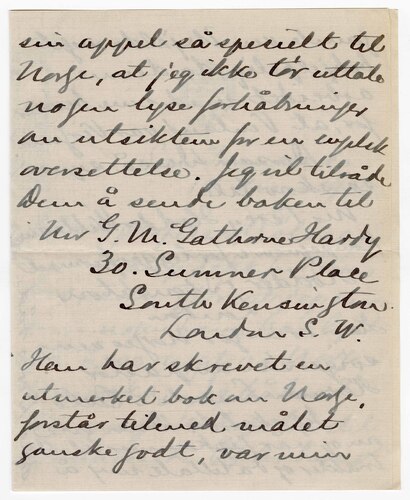 sin appel så spesielt til
Norge, at jeg ikke tør uttale
nogen lyse forhåbninger
om utsikten for en englsk
oversettelse. Jeg vil tilråde
Dem å sende boken til
Mr G. M. Gathorne Hardy
30. Sumner Place
South Kensington.
London S. W.
Han har skrevet en
utmerket bok om Norge,
forstår tilmed målet
ganske godt, var min